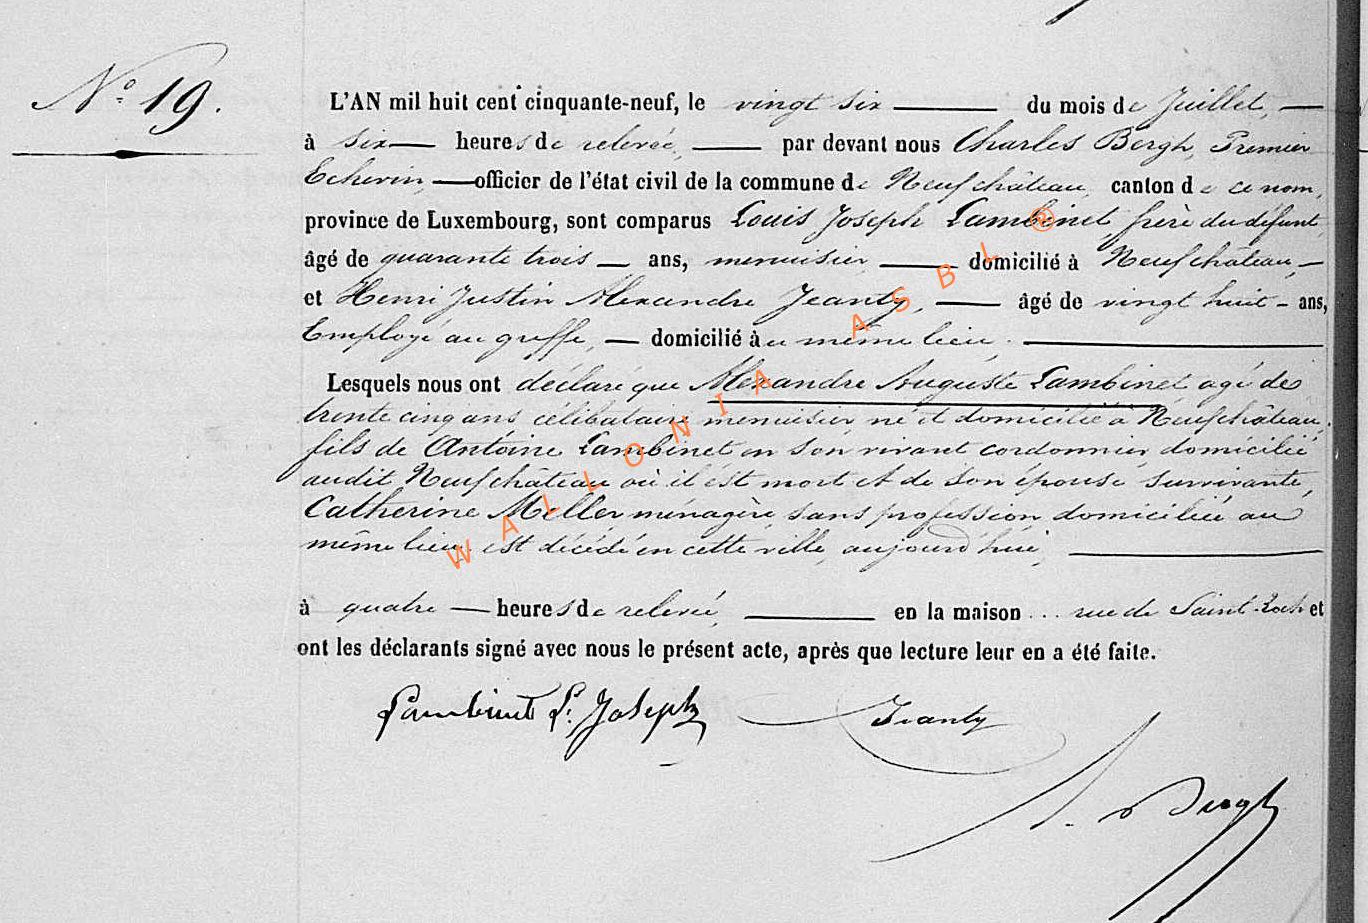 N° 19.
L'AN mil huit cent cinquante-neuf, le vingt six du mois de Juillet,
à six heures de relevée, par devant nous Charles Bergh, Premier
Echevin, officier de l'état civil de la commune de Neufchâteau, canton de ce nom,
province de Luxembourg, sont comparus Louis Joseph Lambinet, frère du défunt
âgé de quarante trois ans, menuisier, domicilié à Neufchâteau,
et Henri Justin Alexandre Jeanty, âgé de vingt huit ans,
Employé au greffe, domicilié au même lieu.
Lesquels nous ont déclaré que Alexandre Auguste Lambinet agé de
trente cinq ans célibataire menuisier né et domicilié à Neufchâteau,
fils de Antoine Lambinet en son vivant cordonnier domicilié
audit Neufchâteau où il est mort et de son épouse survivante,
Catherine Meller ménagère, sans profession, domiciliée au
même lieu, est décédé en cette ville, aujourd'hui,
à quatre heures de relevée, en la maison ... rue de Saint-Roch et
ont les déclarants signé avec nous le présent acte, après que lecture leur en a été faite.
Lambinet L. Joseph Jeanty
Bergh
WALLONIA ASBL ®